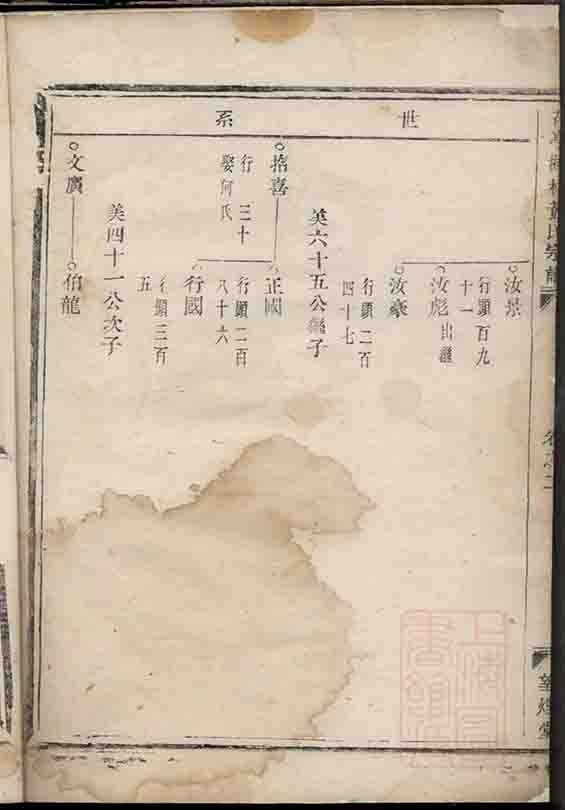 世系
汝景
行顯百九
十一
汝彪出繼
汝豪
行顯二百
四十七
美六十五公繼子
揞喜
行三十
娶何氏
正國
行顯二百
八十六
行國
行顯三百
五
美四十一公次子
文廣
伯龍
董氏宗譜
卷之二